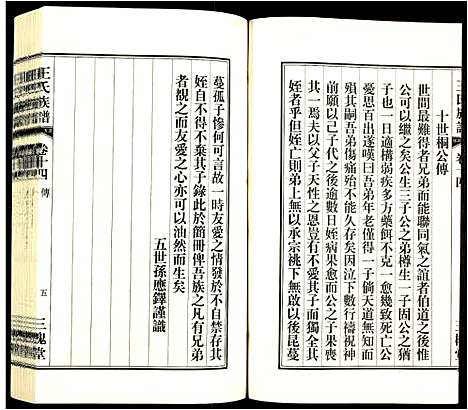 王氏族譜 卷十四
十世桐公傳
世間最難得者兄弟而能聯同氣之誼者伯道之後惟
公可以繼之矣公生三子公之弟樽生一子固公之猶
子也一日適構弱疾多方藥餌不克一愈幾致死亡公
憂思百出遂嘆曰吾弟年老僅得一子倘天道無知竟
殞其嗣吾弟傷痛殆不能久存矣因清夜焚香禱祝神
前願以己子代之後逾數月日姪病果愈而公之子果
其一焉夫以父子天性之恩豈有不愛其子而獨全其
姪者乎但姪亡則弟上無以承宗祧下無以啟後昆蔓
蔓孤子慘何可言故一時友愛之情發於不自禁存其
姪自不得不棄其子錄此於簡冊俾吾族之凡有兄弟
者覩之而友愛之心亦可以油然而生矣
五世孫應鐸謹識
王氏族譜
卷十四
傳
五
三槐堂